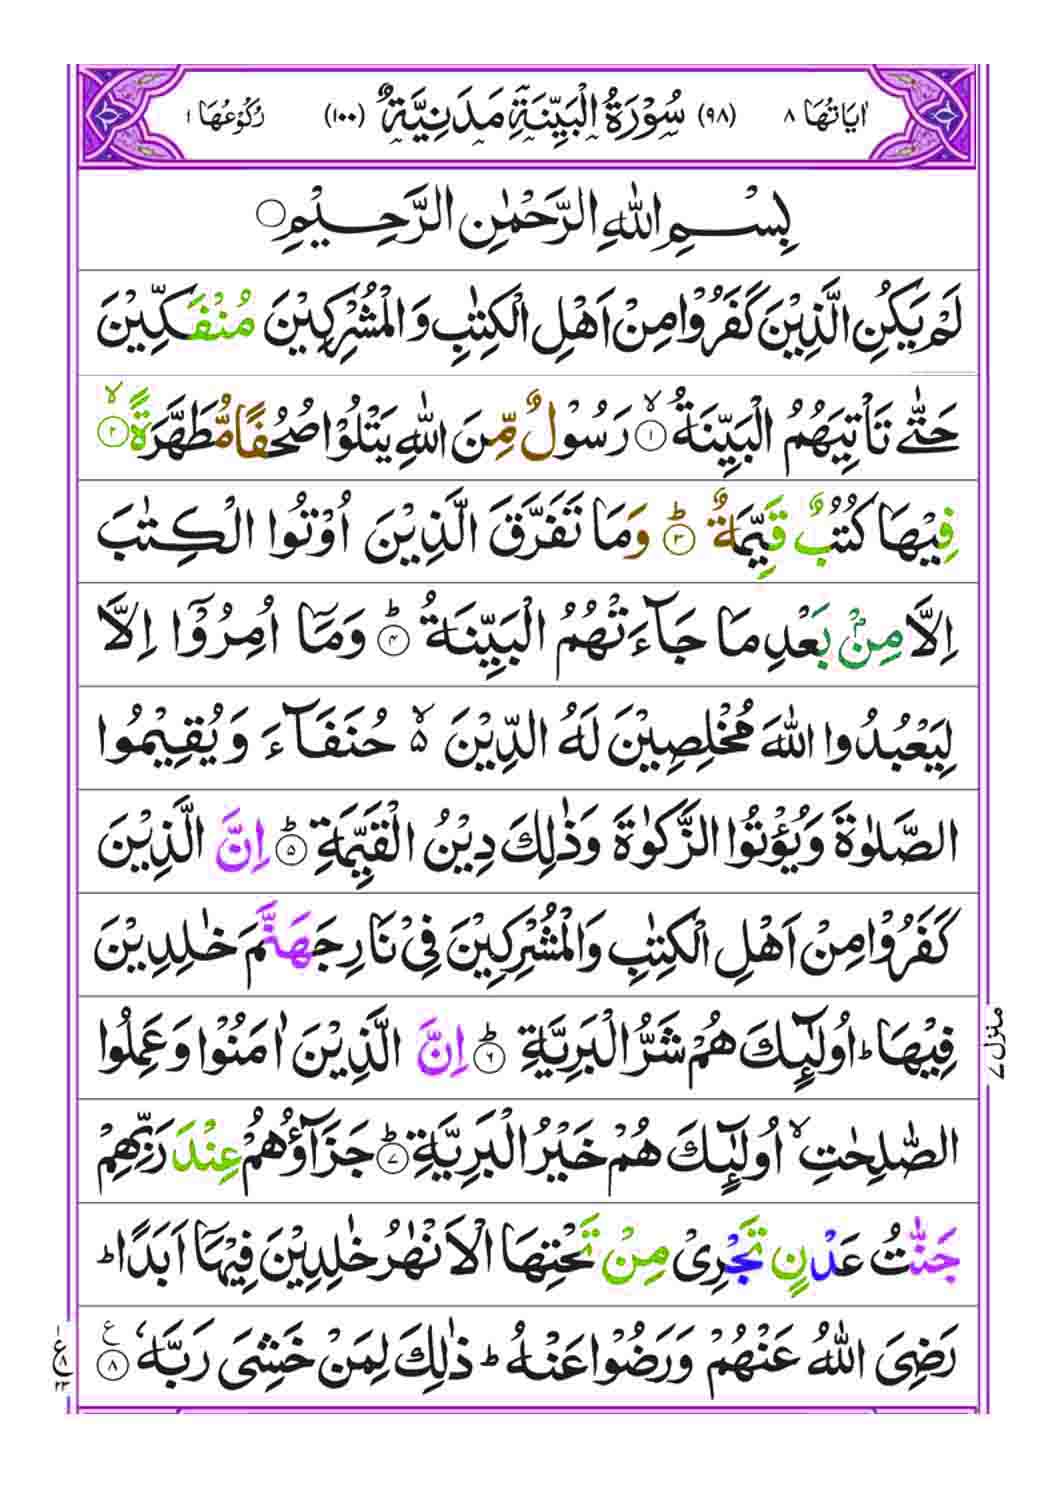 اٰيَاتُهَا ٨ (٩٨) سُوْرَةُ الْبَيِّنَةِ مَدَنِيَّةٌ (١٠٠) رُكُوْعُهَا ١
بِسْمِ اللّٰهِ الرَّحْمٰنِ الرَّحِيْمِ ۝
لَمْ يَكُنِ الَّذِيْنَ كَفَرُوْا مِنْ اَهْلِ الْكِتٰبِ وَالْمُشْرِكِيْنَ مُنْفَكِّيْنَ
حَتّٰى تَاْتِيَهُمُ الْبَيِّنَةُ ۙ﴿١﴾ رَسُوْلٌ مِّنَ اللّٰهِ يَتْلُوْا صُحُفًا مُّطَهَّرَةً ۙ﴿٢﴾
فِيْهَا كُتُبٌ قَيِّمَةٌ ؕ﴿٣﴾ وَمَا تَفَرَّقَ الَّذِيْنَ اُوْتُوا الْكِتٰبَ
اِلَّا مِنْۢ بَعْدِ مَا جَآءَتْهُمُ الْبَيِّنَةُ ؕ﴿٤﴾ وَمَاۤ اُمِرُوْۤا اِلَّا
لِيَعْبُدُوا اللّٰهَ مُخْلِصِيْنَ لَهُ الدِّيْنَ ۙ۵ حُنَفَآءَ وَيُقِيْمُوا
الصَّلٰوةَ وَيُؤْتُوا الزَّكٰوةَ وَذٰلِكَ دِيْنُ الْقَيِّمَةِ ؕ﴿۵﴾ اِنَّ الَّذِيْنَ
كَفَرُوْا مِنْ اَهْلِ الْكِتٰبِ وَالْمُشْرِكِيْنَ فِيْ نَارِ جَهَنَّمَ خٰلِدِيْنَ
فِيْهَا ؕ اُولٰٓئِكَ هُمْ شَرُّ الْبَرِيَّةِ ؕ﴿٦﴾ اِنَّ الَّذِيْنَ اٰمَنُوْا وَعَمِلُوا
الصّٰلِحٰتِ ۙ اُولٰٓئِكَ هُمْ خَيْرُ الْبَرِيَّةِ ؕ﴿٧﴾ جَزَآؤُهُمْ عِنْدَ رَبِّهِمْ
جَنّٰتُ عَدْنٍ تَجْرِيْ مِنْ تَحْتِهَا الْاَنْهٰرُ خٰلِدِيْنَ فِيْهَاۤ اَبَدًا ؕ
رَضِيَ اللّٰهُ عَنْهُمْ وَرَضُوْا عَنْهُ ؕ ذٰلِكَ لِمَنْ خَشِيَ رَبَّهٗ ﴿٨﴾ ع
منزل ٧
١
ع ٨
٢٣